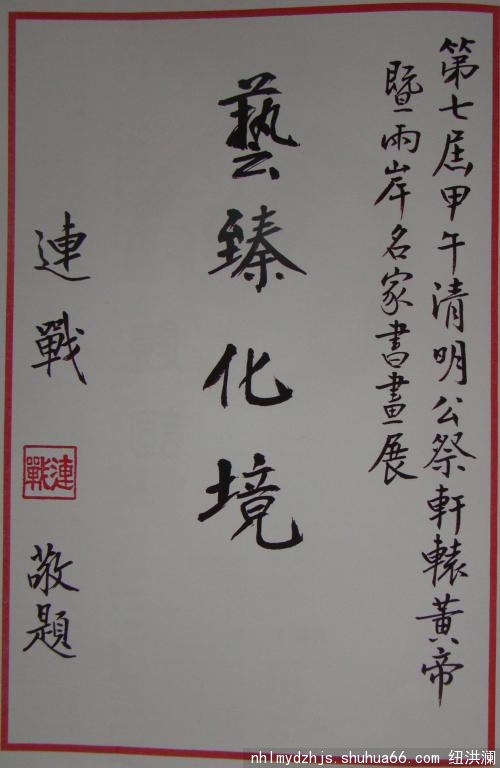 第七屆甲午清明公祭軒轅黃帝
暨兩岸名家書畫展
藝臻化境
連戰
連戰
敬題
nhlmydzhjs.shuhua66.com 纽洪澜